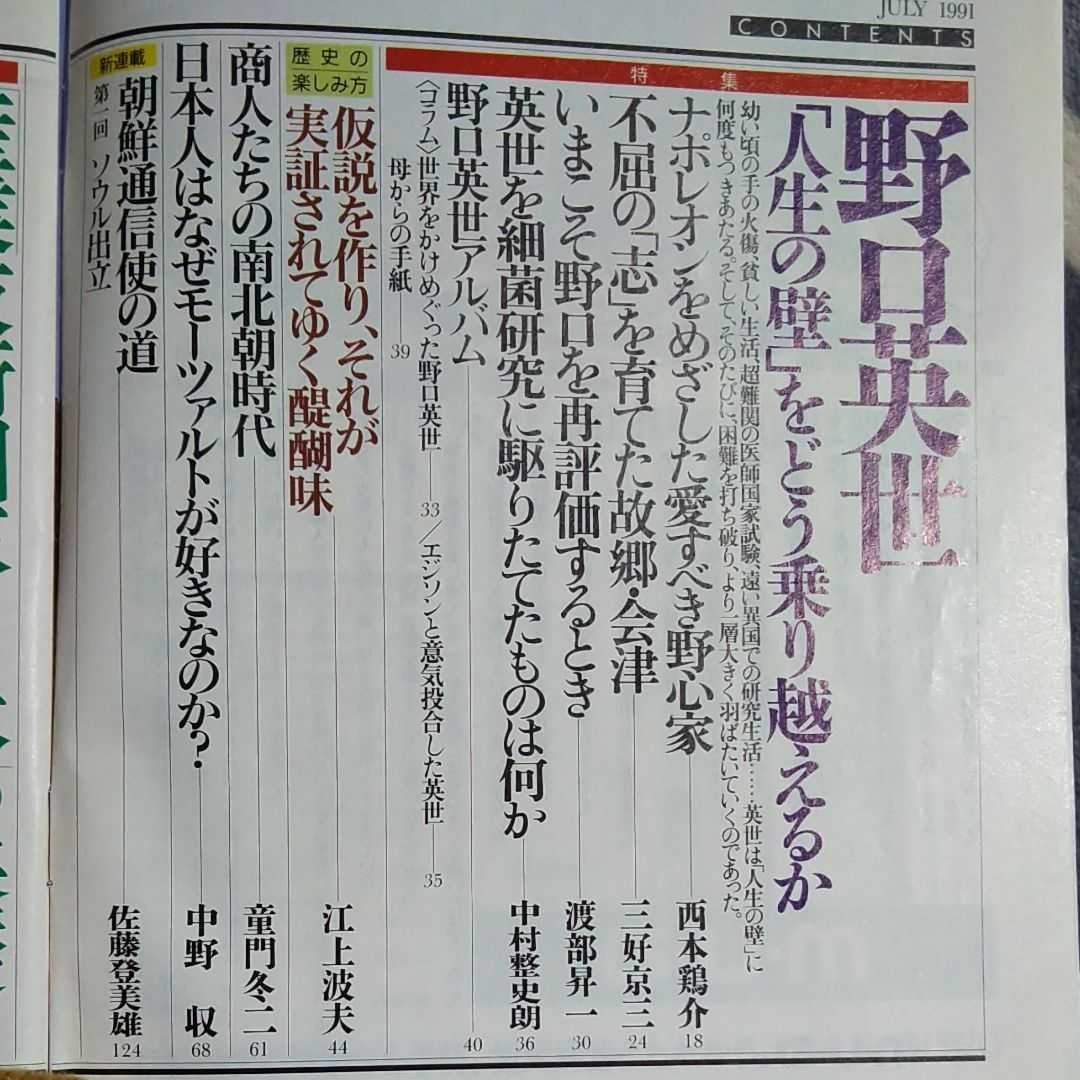 JULY 1991
CONTENTS
特集
野口英世
「人生の壁」をどう乗り越えるか
幼い頃の手の火傷、貧しい生活、超難関の医師国家試験、遠い異国での研究生活……英世は「人生の壁」に
何度もつきあたる。そして、そのたびに、困難を打ち破り、より一層大きく羽ばたいていくのであった。
ナポレオンをめざした愛すべき野心家 西本鶏介 18
不屈の「志」を育てた故郷・会津 三好京三 24
いまこそ野口を再評価するとき 渡部昇一 30
英世を細菌研究に駆りたてたものは何か 中村整史朗 36
野口英世アルバム 40
〈コラム〉世界をかけめぐった野口英世 33/エジソンと意気投合した英世 35
母からの手紙 39
歴史の
楽しみ方
仮説を作り、それが
実証されてゆく醍醐味 江上波夫 44
商人たちの南北朝時代 童門冬二 61
日本人はなぜモーツァルトが好きなのか? 中野収 68
新連載
朝鮮通信使の道 佐藤登美雄 124
第一回 ソウル出立